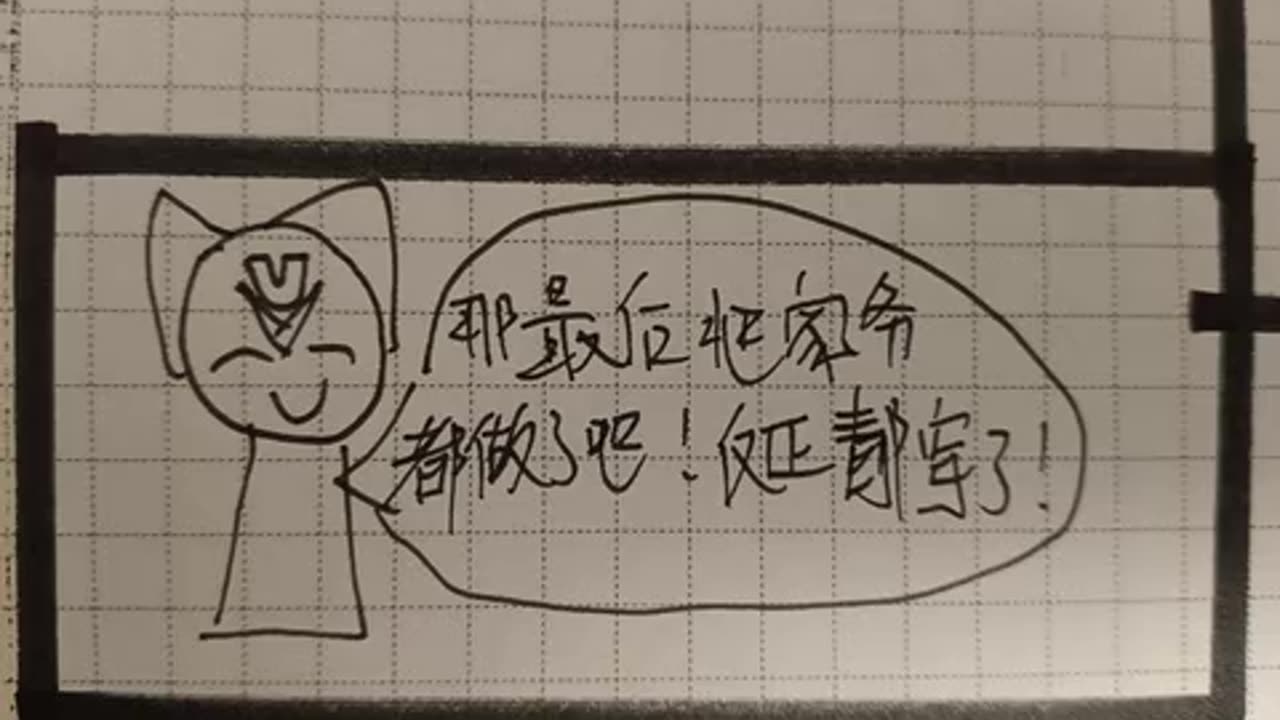 那最后把家务
都做了吧！反正都穿了！